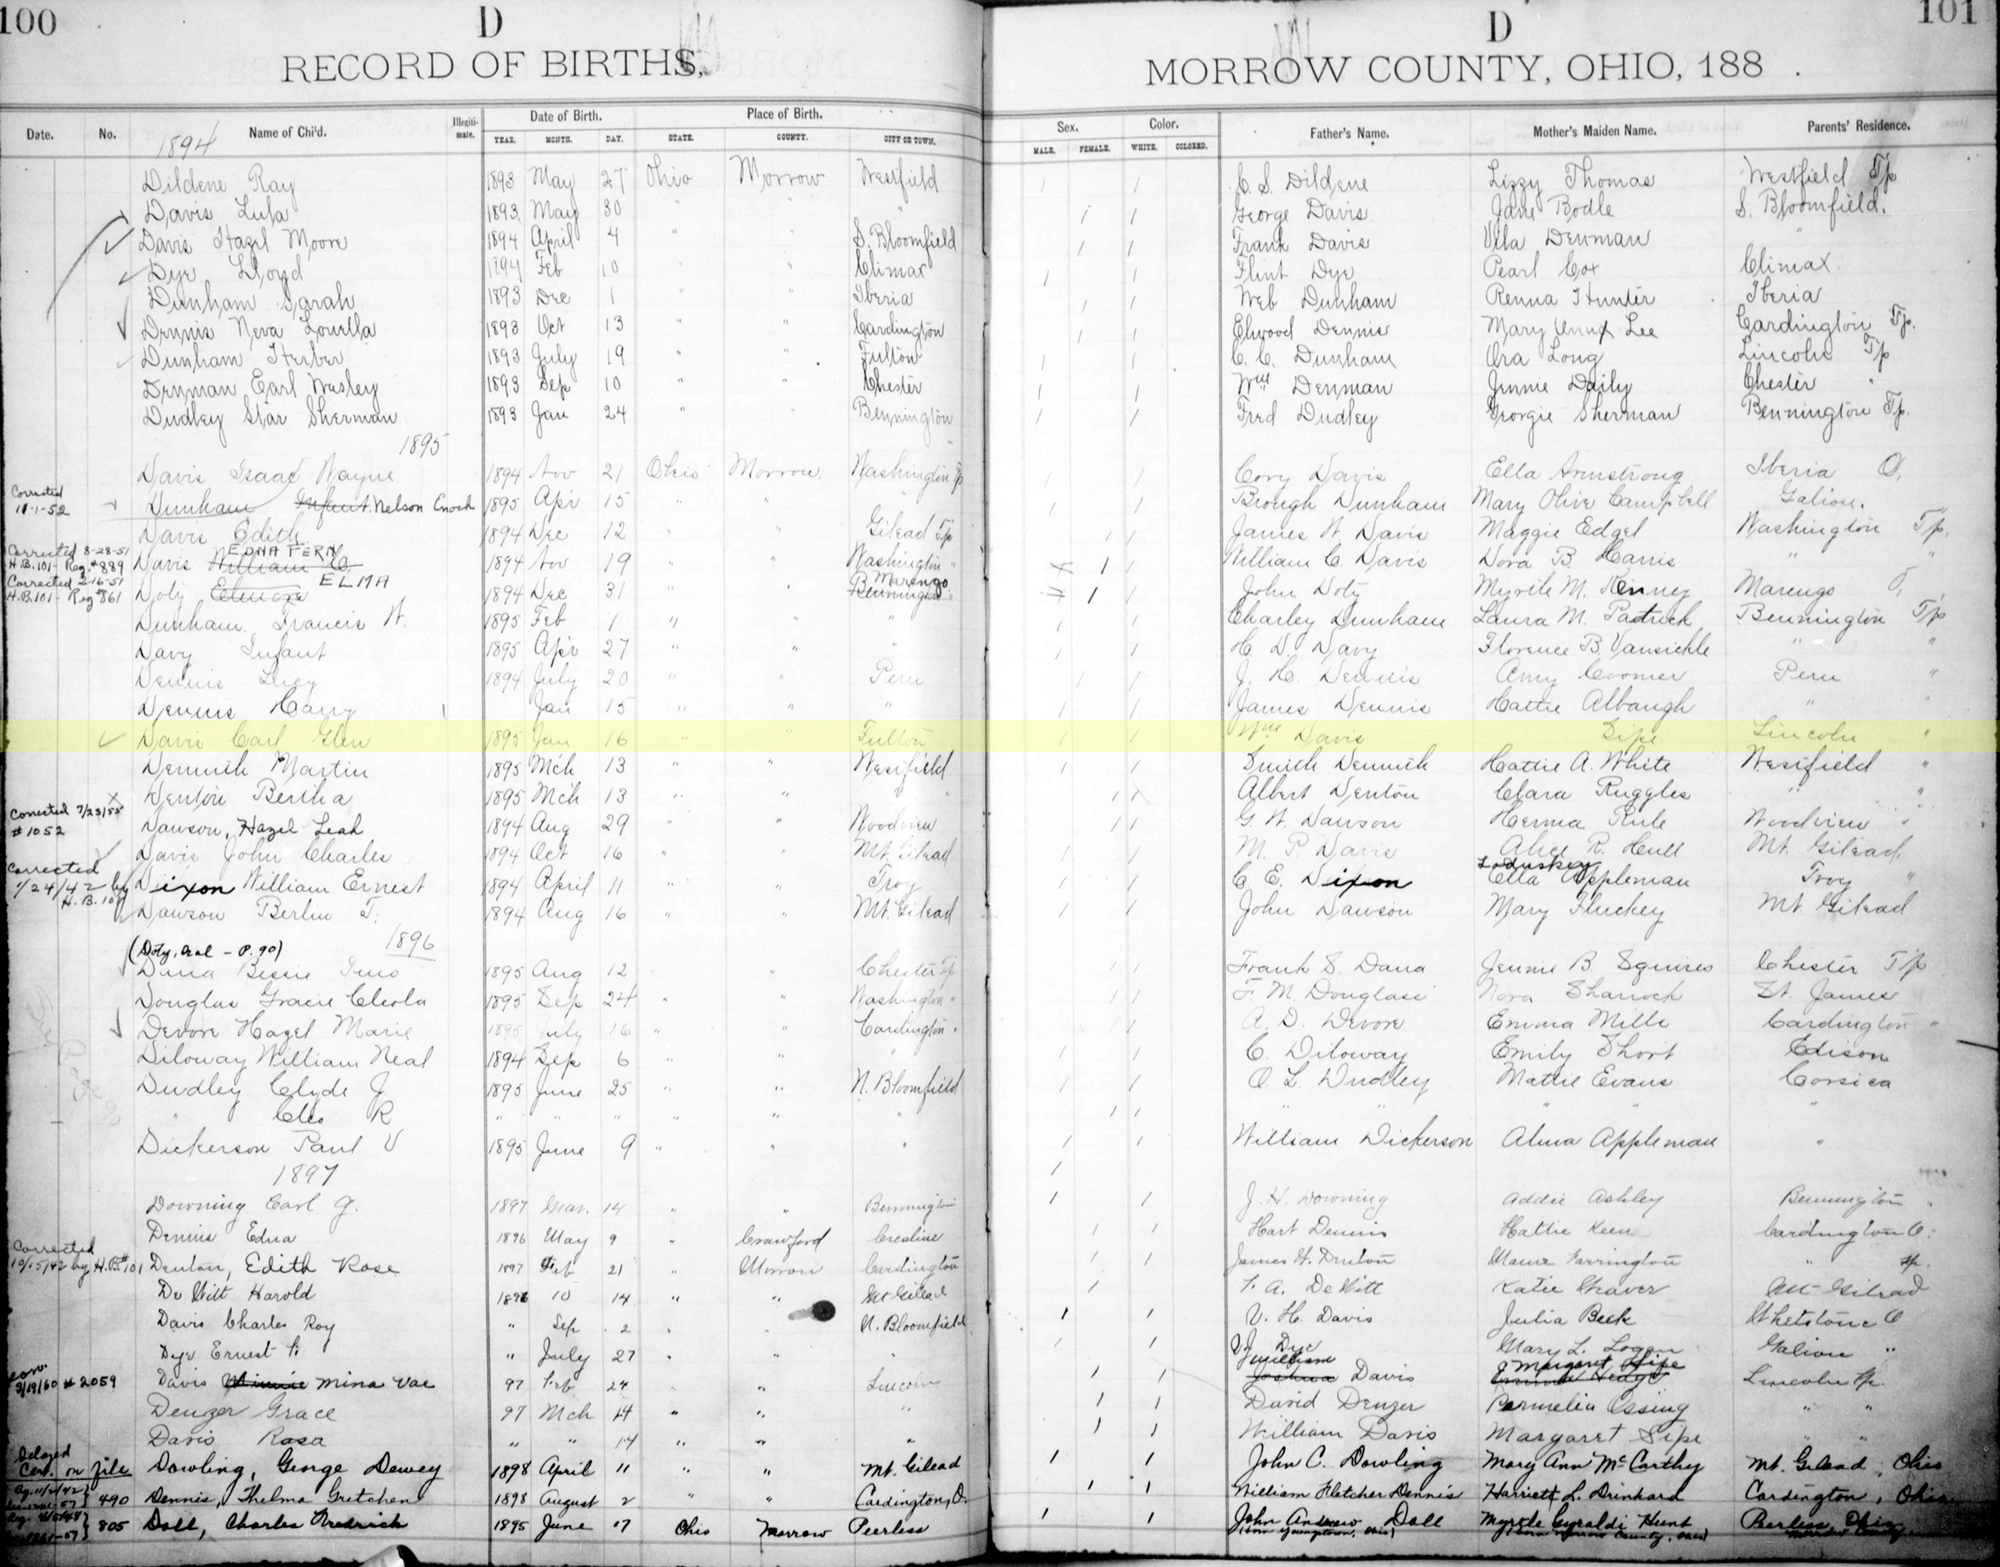 100 D D 101
RECORD OF BIRTHS, MORROW COUNTY, OHIO, 188 .
Date. No. Name of Child. Illegiti-mate. Date of Birth. Place of Birth. Sex. Color. Father's Name. Mother's Maiden Name. Parents' Residence.
YEAR. MONTH. DAY. STATE. COUNTY. CITY OR TOWN. MALE. FEMALE. WHITE. COLORED.
1894
Dildene Ray 1893 May 27 Ohio Morrow Westfield / / C. S. Dildene Lizzy Thomas Westfield Tp
Davis Lula 1893 May 30 " " " / / George Davis Jane Bodle S. Bloomfield.
Davis Hazel Moore 1894 April 4 " " S. Bloomfield / / Frank Davis Denman "
Dye Lloyd 1894 Feb 10 " " Climax / / Flint Dye Pearl Cox Climax
Dunham Sarah 1893 Dec 1 " Iberia / / Web Dunham Renna Hunter Iberia
Dennis Neva Louella 1893 Oct 13 " " Cardington / / Elwood Dennis Mary Lee Cardington Tp.
Dunham Herber 1893 July 19 " " Fulton / / C. C. Dunham Ora Long Lincoln Tp
Denman Earl Wesley 1893 Sep 10 " " Chester / / Wm Denman Jennie Daily Chester "
Dudley Star Sherman 1893 Jan 24 " " Bennington / / Fred Dudley Georgie Sherman Bennington Tp.
1895
Davis Isaac Wayne 1894 Nov 21 Ohio Morrow Washington Tp / / Cory Davis Ella Armstrong Iberia O.
Corrected 11-1-52 Dunham Infant Nelson Enoch 1895 Apr 15 " " " / / Brough Dunham Mary Olive Campbell Galion.
Davis Edith 1894 Dec 12 " Gilead Tp / / James W. Davis Maggie Edgel Washington Tp.
Corrected 8-28-51 H.B. 101- Reg. #889 Davis William C EDNA FERN 1894 Nov 19 " " Washington " / / William C. Davis Dora B. Harris " "
Corrected 2-16-51 H.B. 101- Reg #861 Doty Elenora ELMA 1894 Dec 31 " " Bennington Marengo / / John Doty Myrtle M. Kenney Marengo O,
Dunham Francis W. 1895 Feb 1 " " " / / Charley Dunham Laura M. Patrick Bennington Tp
Davy Infant 1895 Apr 27 " " " / / H D Davy Florence B. Vansickle " "
Dennis Lucy 1894 July 20 " " Peru / / J. H. Dennis Amy Coomer Peru "
Dennis Harry Jan 15 " " " / / James Dennis Hattie Albaugh " "
Davis Carl Glen 1895 Jan 16 " " Fulton / / Wm Davis Sipe Lincoln "
Dennick Martin 1895 Mch 13 " " Westfield / / Smith Dennick Hattie A. White Westfield "
Denton Bertha 1895 Mch 13 " " " / / Albert Denton Clara Ruggles " "
Corrected 7/23/55 #1052 Dawson, Hazel Leah 1894 Aug 29 " " Woodview / / G W. Dawson Herma Rule Woodview "
Davis John Charles 1894 Oct 16 " " Mt. Gilead / / M. P. Davis Alice R. Hull Mt Gilead,
Corrected 7/24/42 by H.B. 101 Dixon William Ernest 1894 April 11 " " Troy / / C. E. Dixon Loduskey Ella Appleman Troy "
Dawson Berlin T. 1894 Aug 16 " " Mt. Gilead / / John Dawson Mary Fluckey Mt Gilead
1896
(Doty, Oral - P. 90)
Dana Bessie 1895 Aug 12 " Chester Tp / / Frank S. Dana Jennie B. Squires Chester Tp
Douglas Gracie Cleola 1895 Sep 24 " " Washington " / / F. M. Douglass Nora Sharrock St. James
Devore Hazel Marie 1895 July 16 " " Cardington. / / A. D. Devore Emma Mills Cardington "
Diloway William Neal 1894 Sep 6 " " " / / C. Diloway Emily Short Edison
Dudley Clyde J 1895 June 25 " " N. Bloomfield / / O L. Dudley Mattie Evans Corsica
" Cleo R " " " " " " / / " " " " "
Dickerson Paul V 1895 June 9 " " " / / William Dickerson Alma Appleman "
1897
Downing Carl G. 1897 Mar. 14 " " Bennington / / J. H. Downing Addie Ashley Bennington "
Dennis Edna 1896 May 9 " Crawford Crestline / / Hart Dennis Hattie Keen Cardington O.
Corrected 10/15/42 by H.B. #101 Denton, Edith Rose 1897 Feb 21 " Morrow Cardington / / James W. Denton Mame Farrington " Tp.
De Witt Harold 1896 10 14 " " Mt Gilead / / F. A. DeWitt Katie Weaver Mt Gilead
Davis Charles Roy " Sep 2 " N. Bloomfield / / V. H. Davis Julia Beck Whetstone O
Dye Ernest F. " July 27 " " / / V J Dye Mary L. Logan Galion "
Corr. 3/19/60 #2059 Davis Minnie Mina Vae 97 Feb 24 " " Lincoln / / Joshua William Davis Margaret Sipe Lincoln Tp.
Denzer Grace 97 Mch 14 " " " / / David Denzer Permelia Ossing " "
Davis Rosa " " 14 " " " / / William Davis Margaret Sipe " "
Delayed Cer. on file Dowling, George Dewey 1898 April 11 " " Mt. Gilead / / John C. Dowling Mary Ann McCarthy Mt. Gilead, Ohio
490 Dennis, Thelma Gretchen 1898 August 2 " " Cardington, O. / / William Fletcher Dennis Harriett L. Drinkard Cardington, Ohio
805 Doll, Charles Fredrick 1895 June 17 Ohio Morrow Peerless / / John Andrew Doll Myrtle Geraldi Hunt Peerless, Ohio